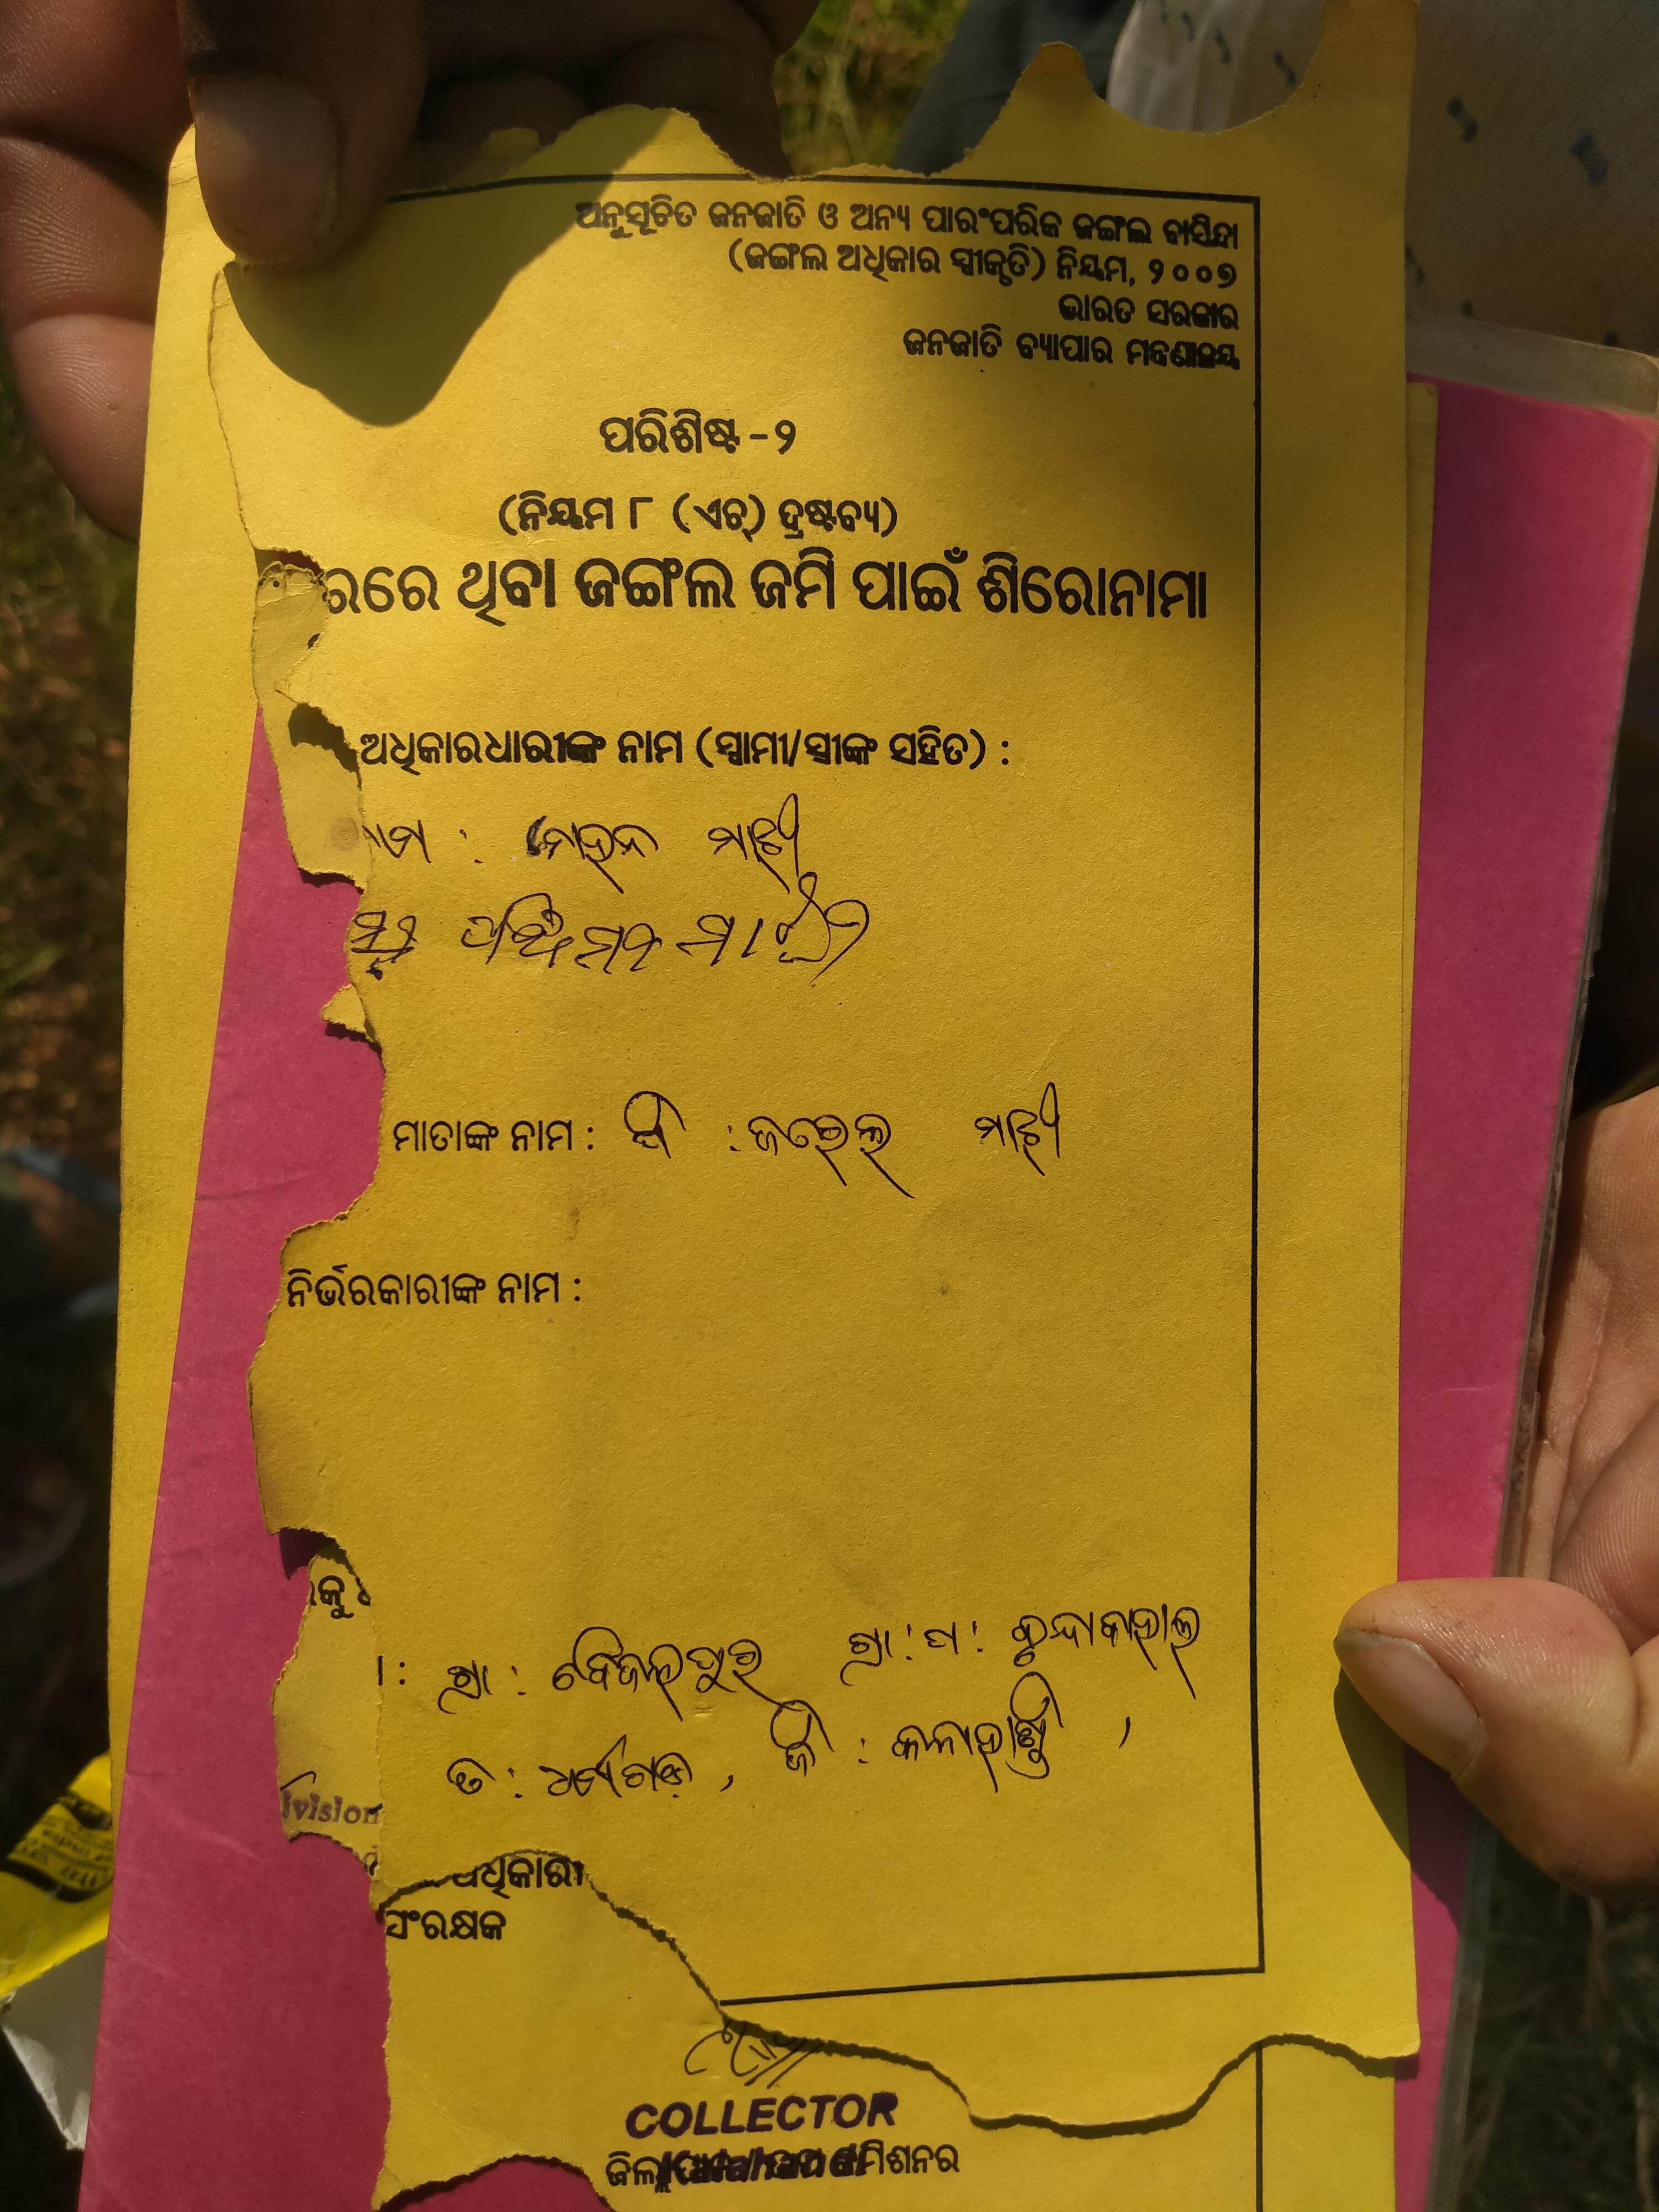 ଅନୁସୂଚିତ ଜନଜାତି ଓ ଅନ୍ୟ ପାରଂପରିକ ଜଙ୍ଗଲ ବାସିନ୍ଦା
(ଜଙ୍ଗଲ ଅଧିକାର ସ୍ୱୀକୃତି) ନିୟମ, ୨୦୦୭
ଭାରତ ସରକାର
ଜନଜାତି ବ୍ୟାପାର ମନ୍ତ୍ରଣାଳୟ
ପରିଶିଷ୍ଟ -୨
(ନିୟମ ୮ (ଏଚ୍) ଦ୍ରଷ୍ଟବ୍ୟ)
ରରେ ଥିବା ଜଙ୍ଗଲ ଜମି ପାଇଁ ଶିରୋନାମା
ଅଧିକାରଧାରୀଙ୍କ ନାମ (ସ୍ୱାମୀ/ସ୍ତ୍ରୀଙ୍କ ସହିତ) :
ମାଝୀ
ମାଝୀ
ମାତାଙ୍କ ନାମ : ମାଝୀ
ନିର୍ଭରକାରୀଙ୍କ ନାମ :
ଗ୍ରା : ବିଜଲପୁର ଗ୍ରା : ପ :
ତ : ଧର୍ମଗଡ଼, ଜି : କଳାହାଣ୍ଡି ,
ivision
ଅଧିକାରୀ
ସଂରକ୍ଷକ
COLLECTOR
ଜିଲ୍ଲା କମିଶନର